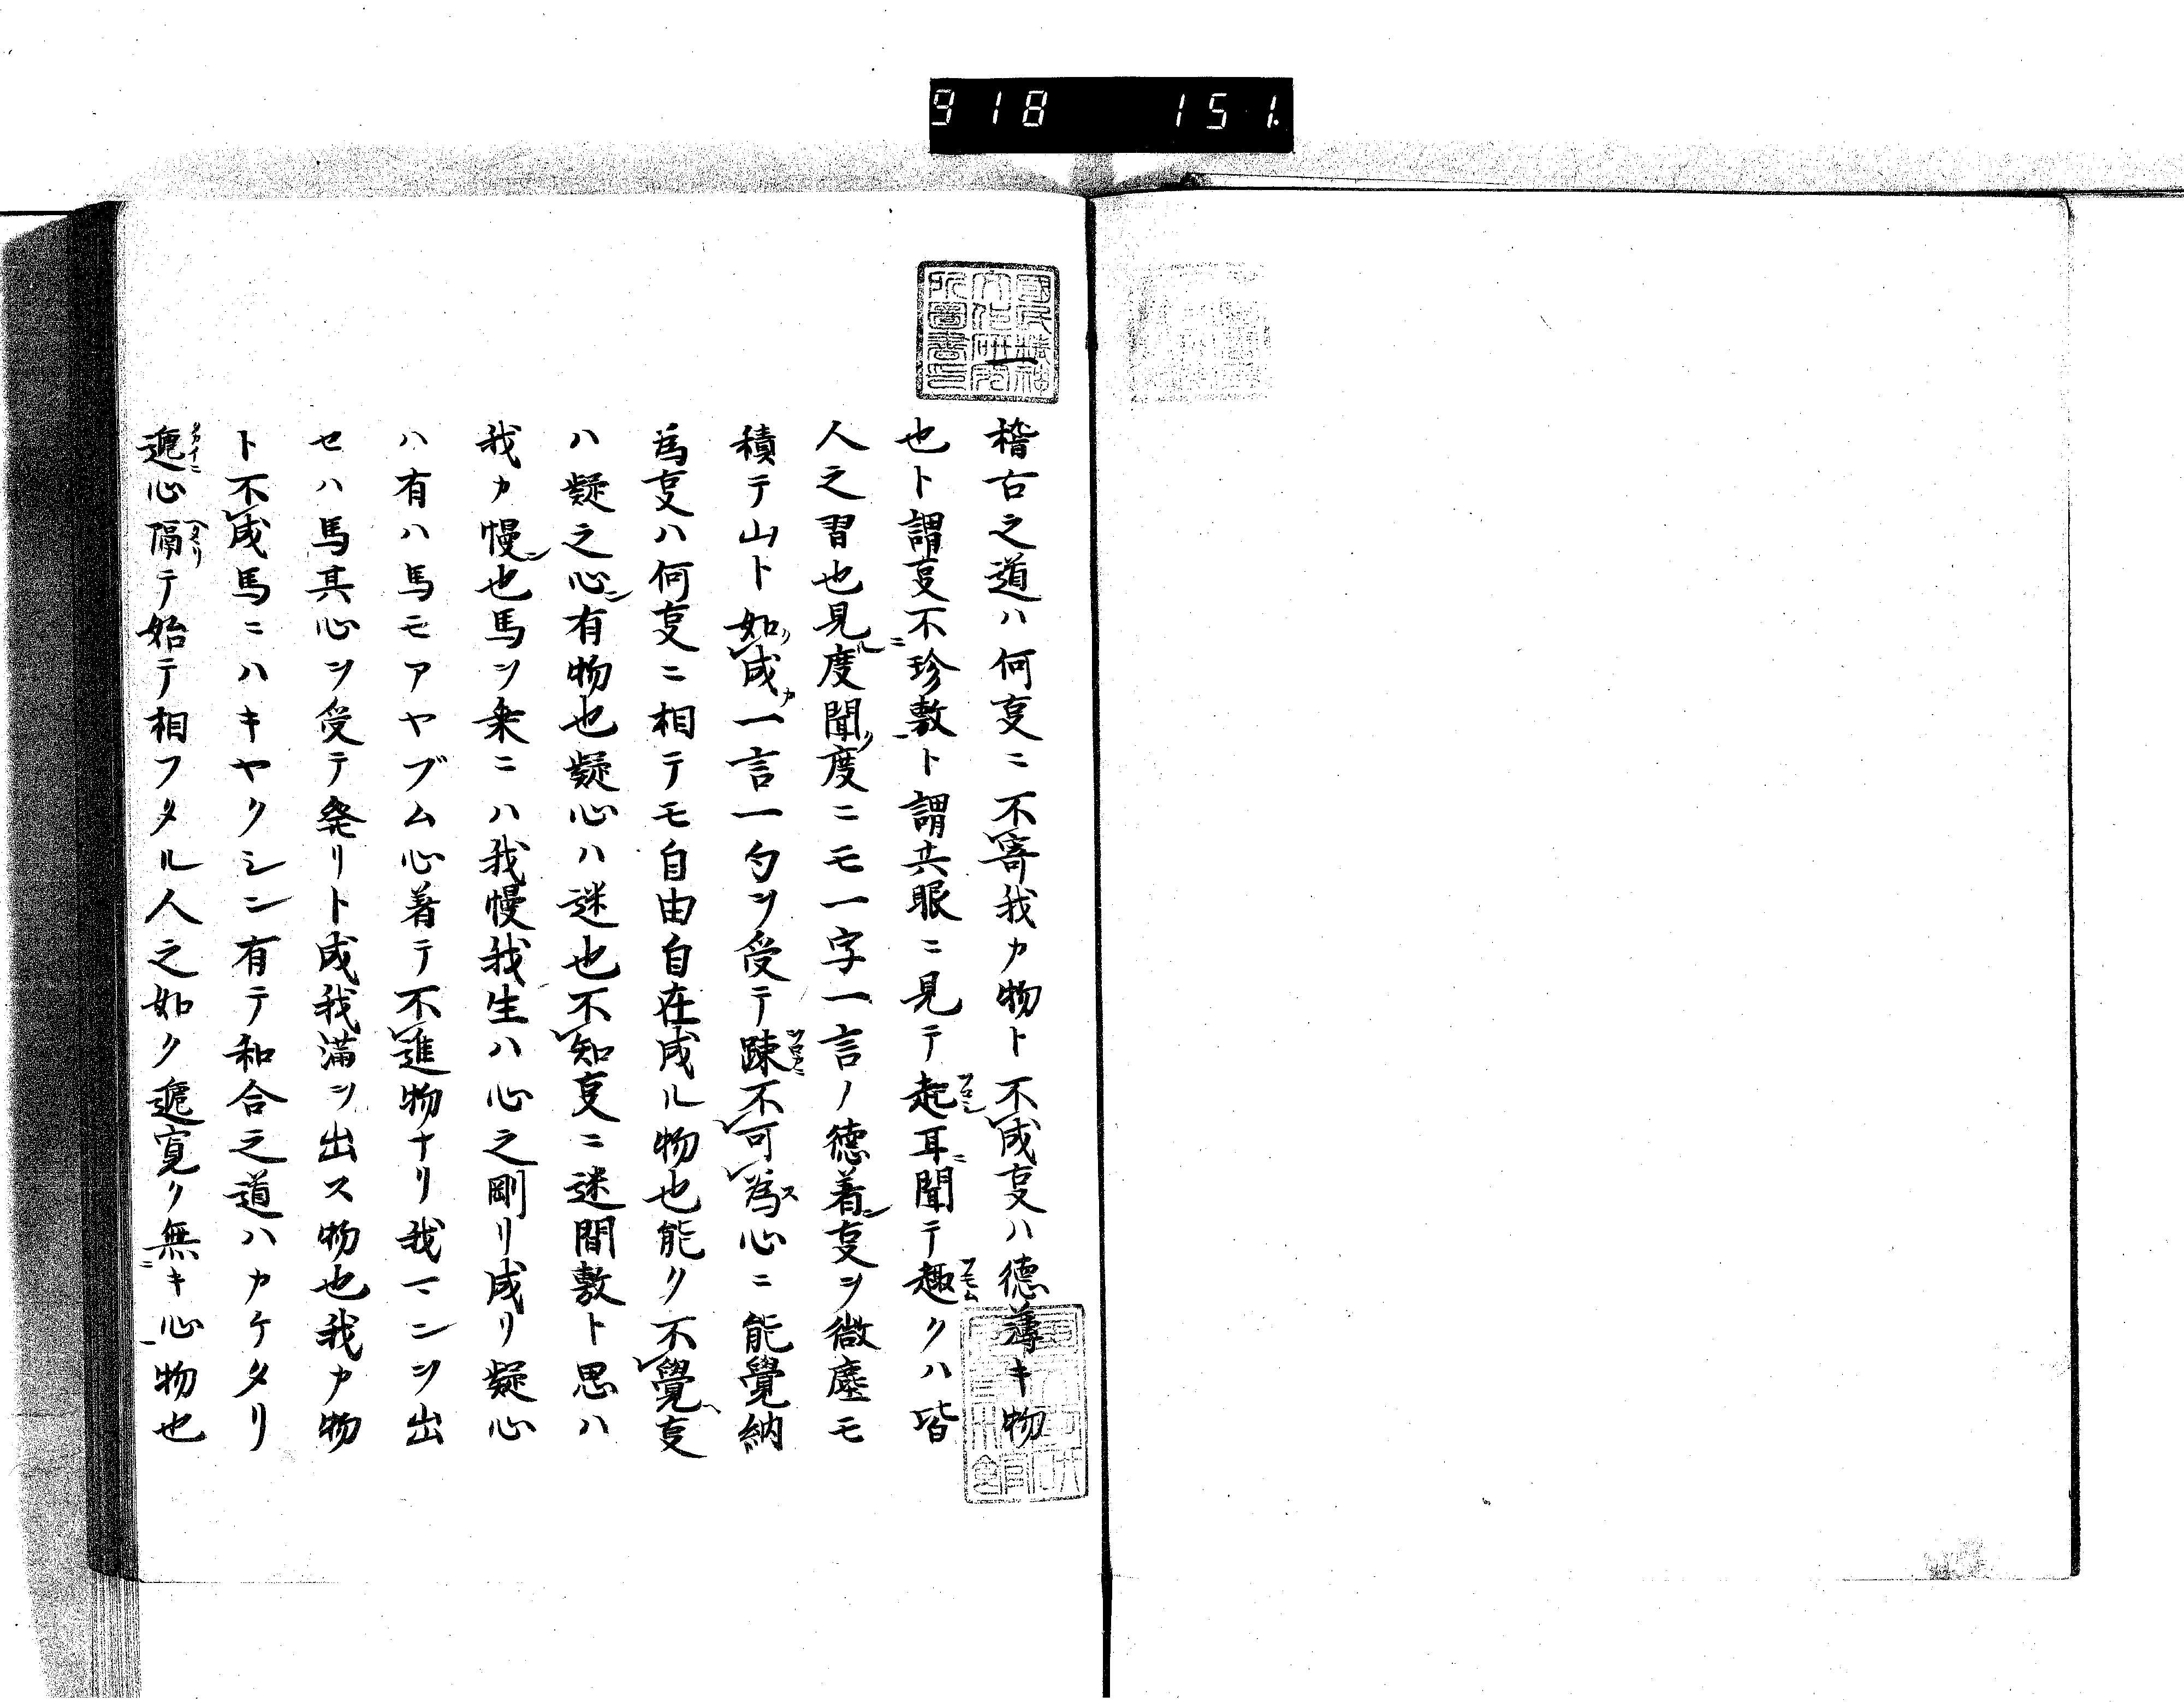 918 151.
國民精神
文化研究
所圖書印
一
稽古之道ハ何叓ニ不寄我カ物ト不成叓ハ德薄キ物
也ト謂叓不珍敷ト謂共眼ニ見テ起耳ニ聞テ趣クハ皆
人之習也見ル度聞ク度ニモ一字一言ノ德着ン叓ヲ微塵モ
積テ山ト如成一言一句ヲ受テ踈不可為ス心ニ能覺納
為叓ハ何叓ニ相テモ自由自在成ル物也能ク不覺叓
ハ疑之心ン有物也疑心ハ迷也不知叓ニ迷間敷ト思ハ
我カ慢ン也馬ヲ乗ニハ我慢我生ハ心之剛リ成リ疑心
ハ有ハ馬モアヤブム心着テ不進物ナリ我マンヲ出
セハ馬其心ヲ受テ発リト成我満ヲ出ス物也我カ物
ト不成馬ニハキヤクシン有テ和合之道ハカケタリ
遞心隔テ始テ相フタル人之如ク遞寛ク無キ心物也